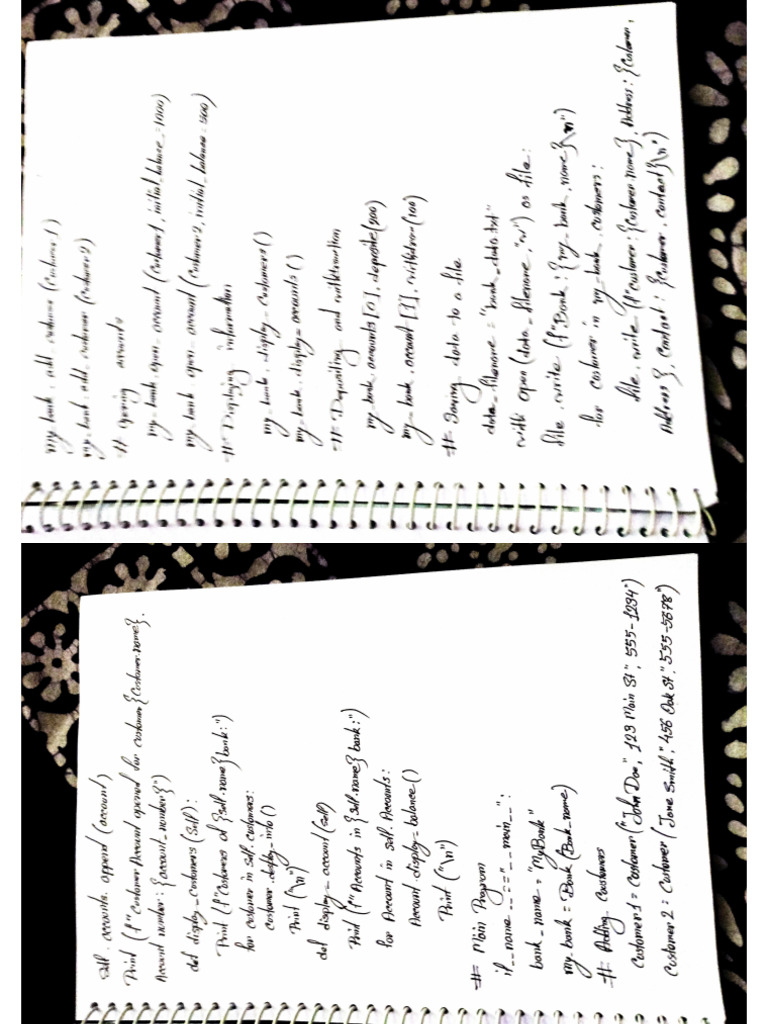 my_bank. add_customer (customer1)
my_bank. add_customer (customer2)
# Opening accounts
my_bank. open_account (customer1, initial_balance = 1000)
my_bank. open_account (customer2, initial_balance = 500)
# Displaying information
my_bank. display_customers()
my_bank. display_accounts()
# Depositing and withdrawtion
my_bank. accounts[0], deposite(200)
my_bank. account [1], withdraw(100)
# Saving data to a file
data_filename = "bank_data.txt"
with open (data_filename, "w") as file:
file.write (f"Bank: {my_bank. name}\n")
for customer in my_bank. customers:
file.write (f"customer: {customer.name}, Address: {customer.
Address}, contact: {customer. contact}\n")
self. accounts. append (account)
Print (f"Customer Account opened for customer {Customer.name}.
Account number: {account_number}")
def display_customers (self):
Print (f"Customers of {self.name} bank:")
for customer in self. customers:
customer.display_info()
Print ("\n")
def display_account (self)
Print (f"Accounts in {self.name} bank:")
for Account in self. Accounts:
Account.display_balance()
Print ("\n")
# Main Program
if__name__=="__main__":
bank_name = "MyBank"
my_bank = Bank (Bank_name)
# Adding Customers
Customer1 = Customer ("John Doe", 123 Main St", 555-1234")
Customer 2 = Customer ("Jane Smith," 456 Oak St," 555-5678")